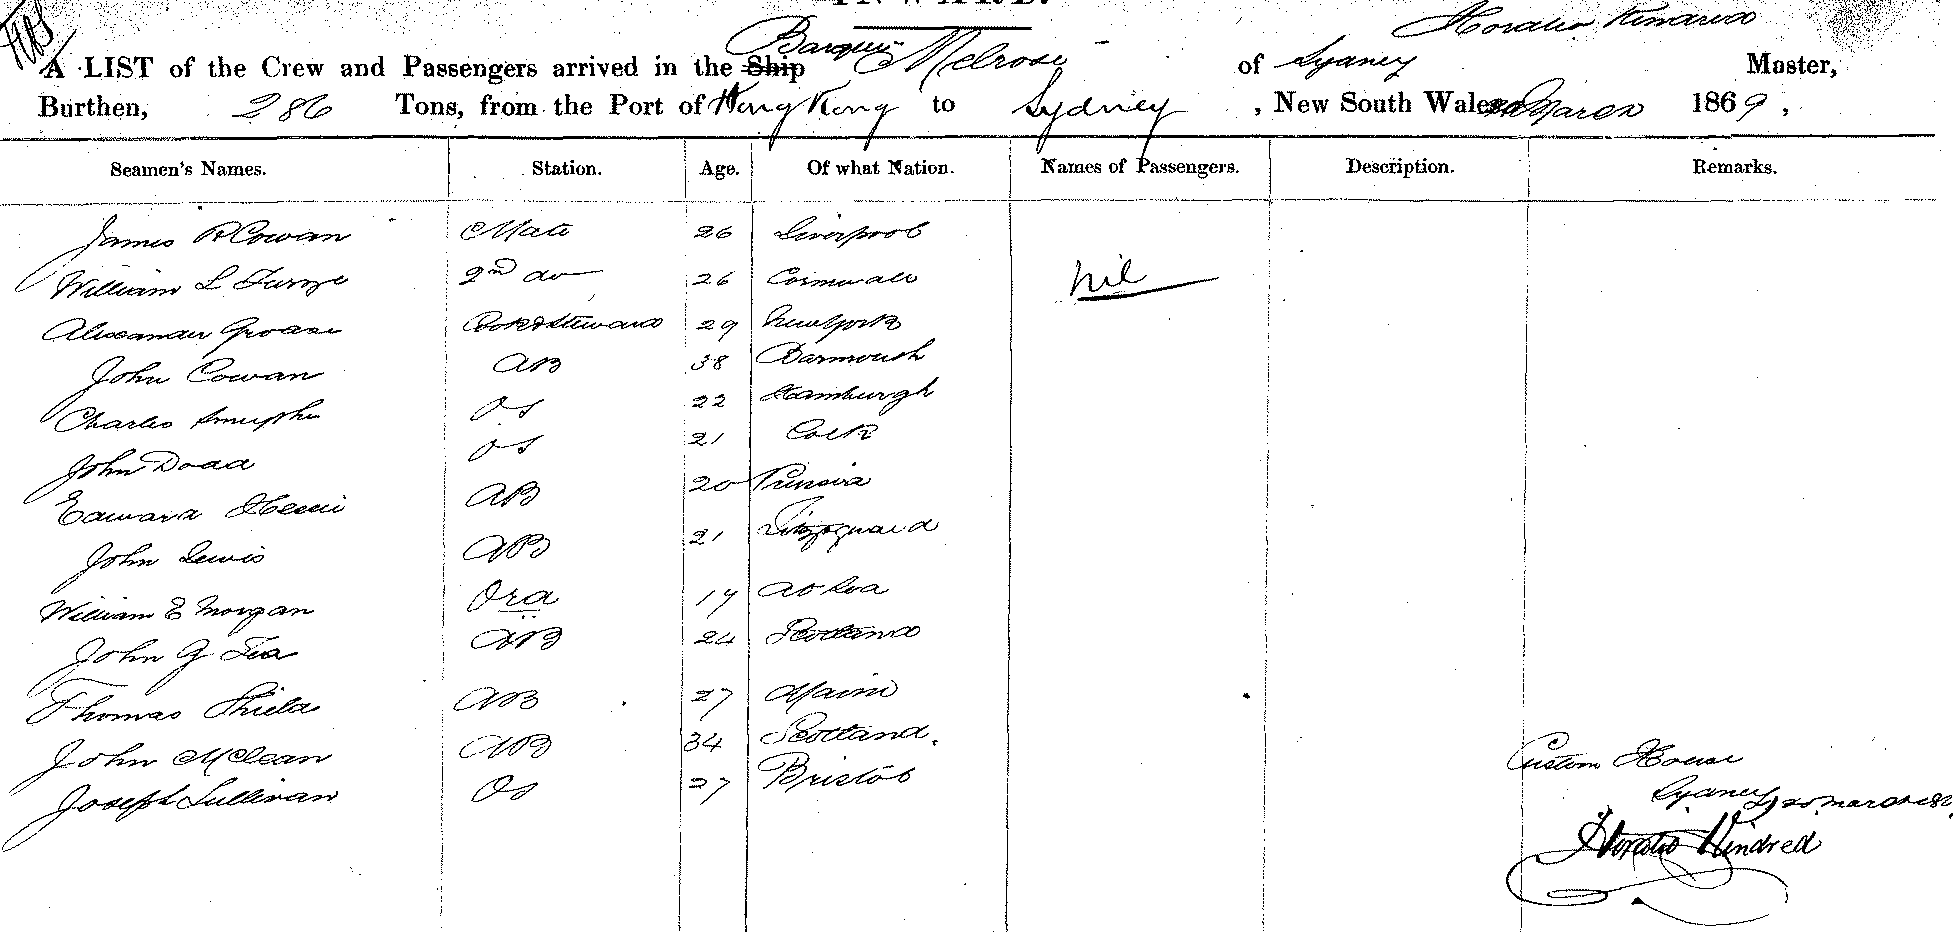 INWARD.
Horatio Kindred
A LIST of the Crew and Passengers arrived in the Ship Barque Melrose of Sydney Master,
Burthen, 286 Tons, from the Port of Hong Kong to Sydney, New South Wales March 1869,
Seamen's Names. Station. Age. Of what Nation. Names of Passengers. Description. Remarks.
James R Cowan Mate 26 Liverpool
William L 2nd do 26 Cornwall nil
Alexander Cook & Steward 29 New York
John Cowan AB 38
Charles OS 22 Hamburgh
John Dodd OS 21 Cork
Edward AB 20 Prussia
John Lewis AB 21
William E Morgan Ord 19
John G AB 24 Scotland
Thomas Shield AB 27
John McLean AB 34 Scotland.
Joseph Sullivan OS 27 Bristol
Custom House
Sydney March
Horatio Kindred